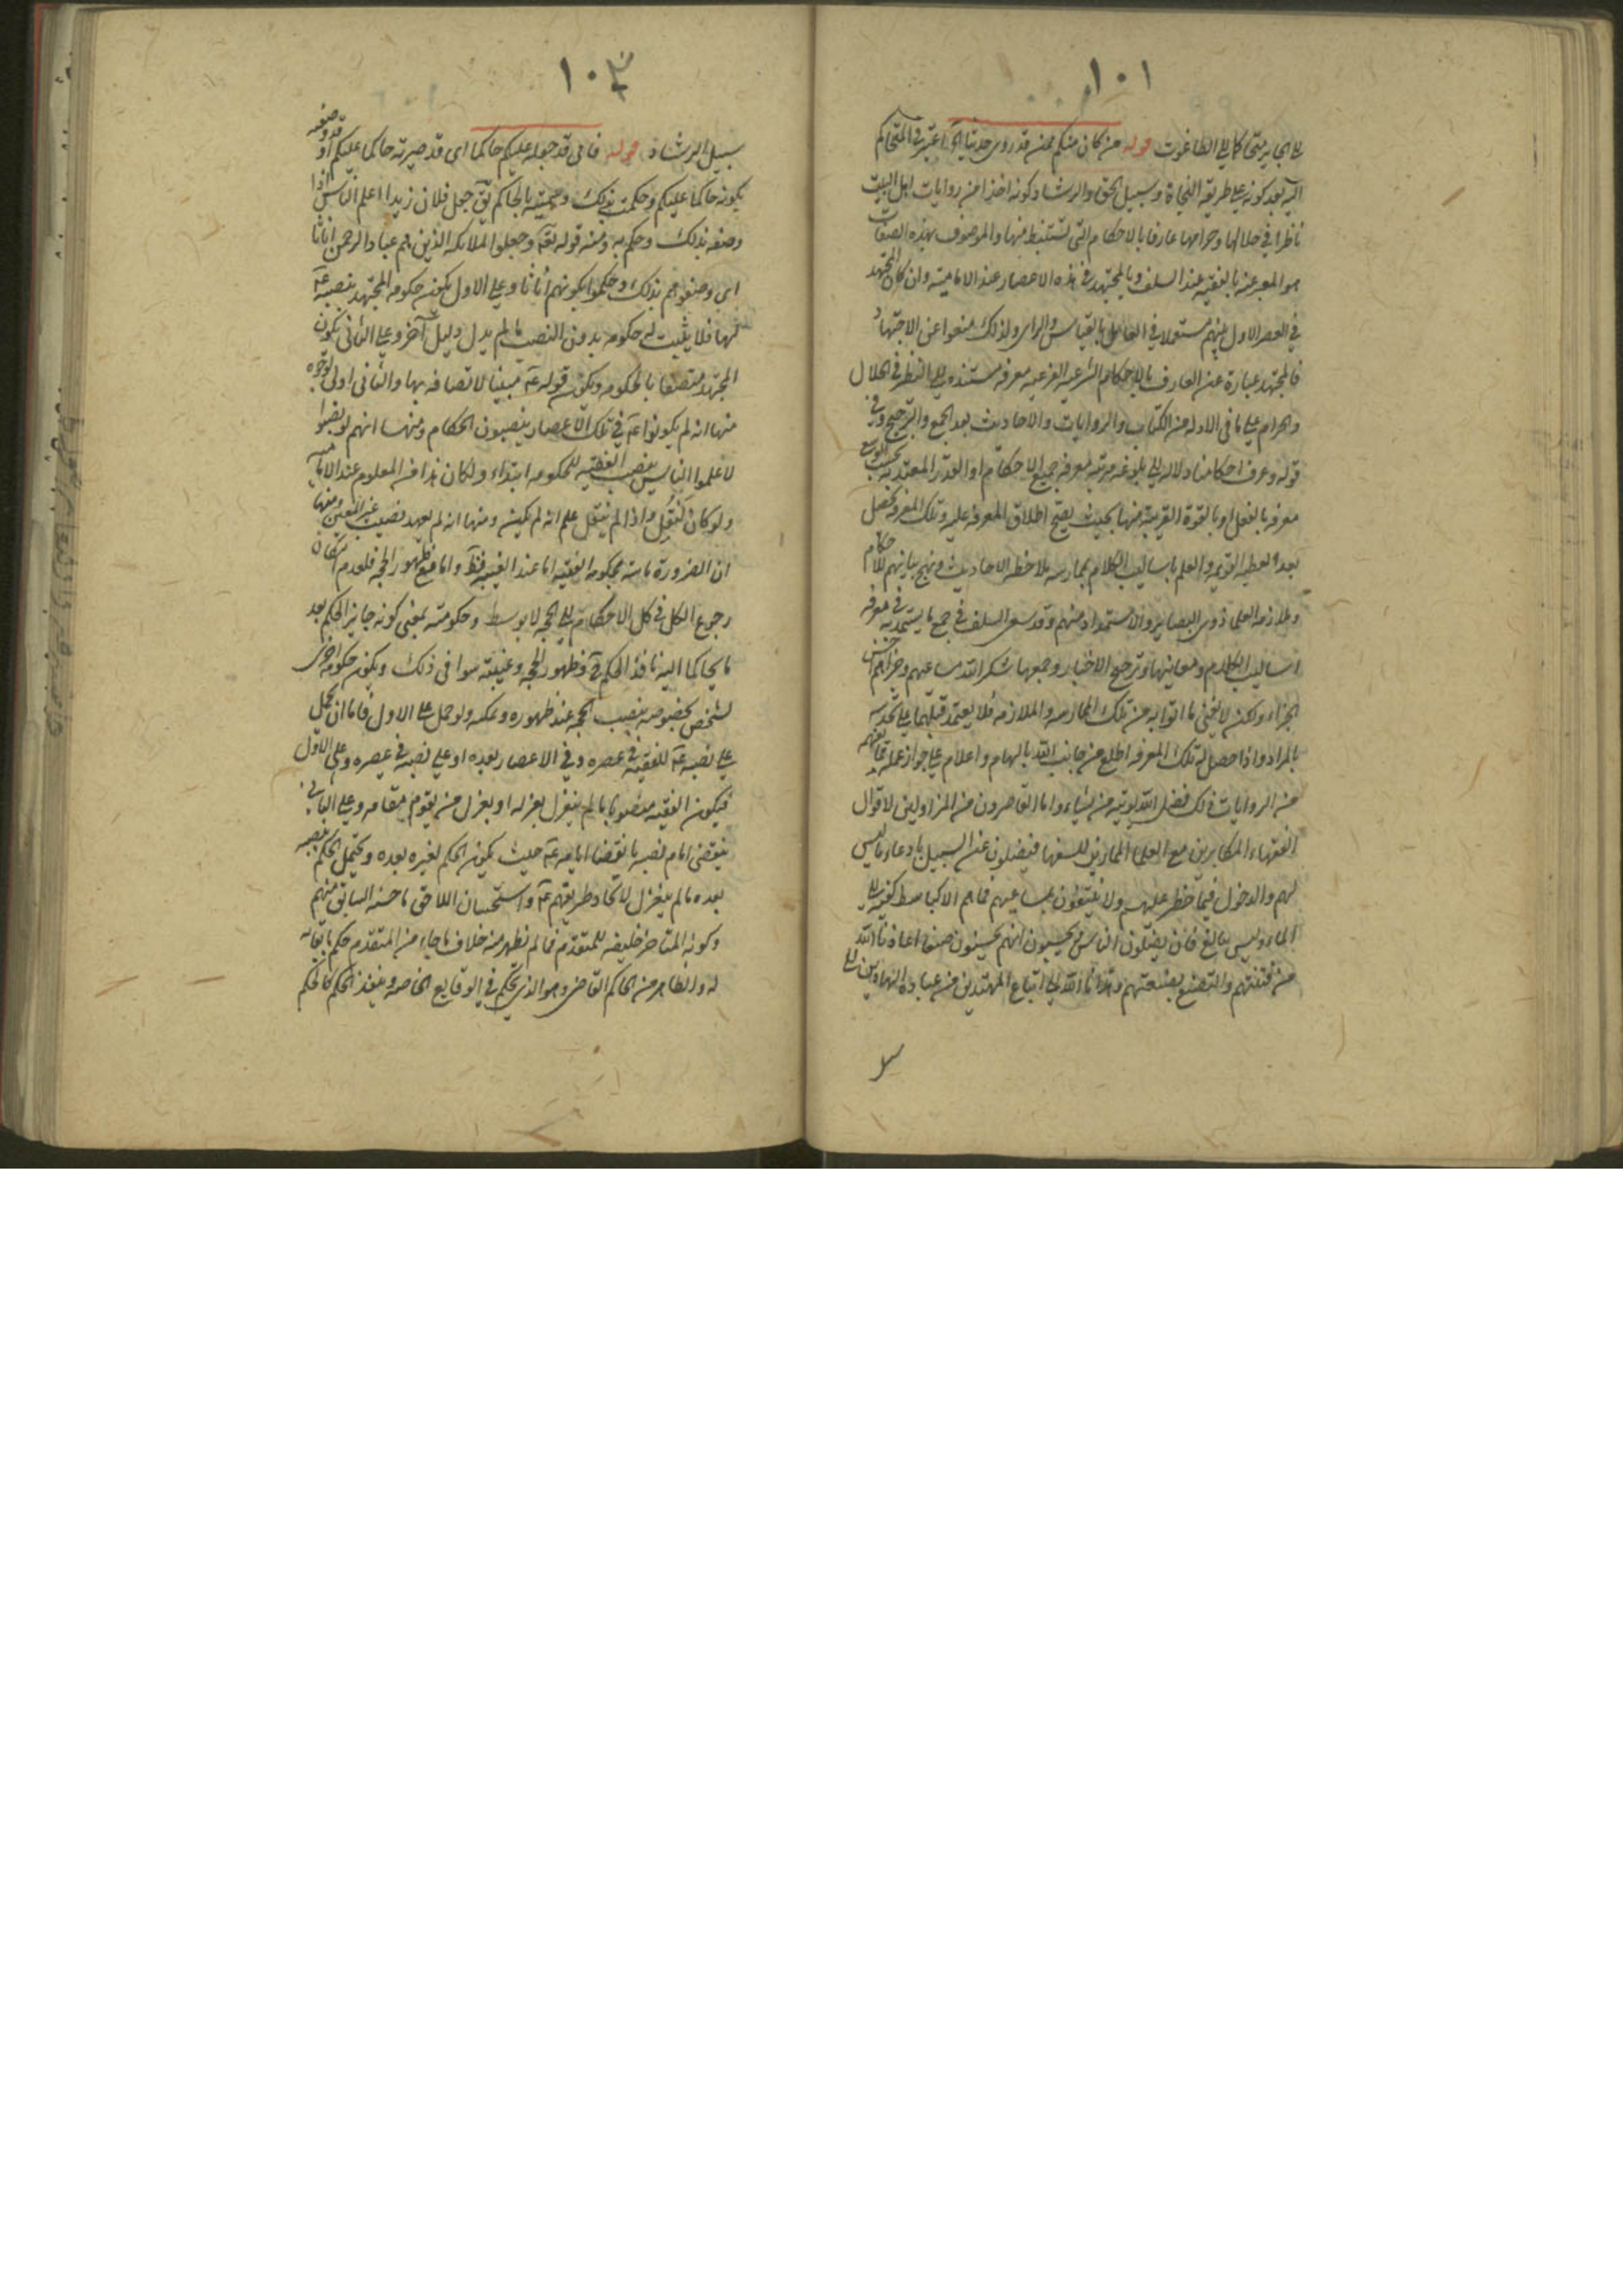 ١٠١
الطاغوت قوله من كان منكم ممن قد روى حديثنا اعتبر في المتحاكم
اليه بعد كونه على طريقة النجاة وسبيل الحق والرشاد كونه اخذا من روايات اهل البيت
ناظرا في حلالها وحرامها عارفا بالاحكام التي تستنبط منها والموصوف بهذه الصفات
هو المعبر عنه بالفقيه عند السلف وبالمجتهد في هذه الاعصار عند الامامية وان كان المجتهد
في العصر الاول بينهم مستعملا في العامل بالقياس والراى ولذلك منعوا عن الاجتهاد
فالمجتهد عبارة عن العارف بالاحكام الشرعية الفرعية معرفة مستندة الى النظر في الحلال
والحرام على ما في الادلة من الكتاب والروايات والاحاديث بعد الجمع والترجيح وفي
قوله وعرف احكامنا دلالة الى بلوغه مرتبة معرفة جميع الاحكام او القدر المعتد به بحسب الوسع
معرفة بالفعل او بالقوة القريبة منها بحيث يصح اطلاق المعرفة عليه وتلك المعرفة تحصل
بعد والعلم باساليب الكلام بممارسة ملاحظة الاحاديث ونهج بيانهم للاحكام
وملازمة العلماء ذوى البصاير والاستمداد منهم وقد سعى السلف في جمع ما يستمد به في معرفة
اساليب الكلام ومعانيها وترجيح الاخبار وجمعها شكر الله مساعيهم وجزاهم احسن
الجزاء ولكن لا يخفى ما اتوا به عن تلك الممارسة والملازمة فلا يعتمد قبلهما على
بالمراد واذا حصل له تلك المعرفة اطلع من جانب الله بالهام واعلام على جواز عمله
من الروايات ذلك فضل الله يؤتيه من يشاء واما القاصرون من المزاولين لاقوال
الفقهاء المكابرين مع العلماء الممارين للسفهاء فيضلون عن السبيل بادعاء ما ليس
لهم والدخول فيما حظر عليهم ولا ينتفعون بمساعيهم فما هم الا كباسط كفيه الى
الماء وليس ببالغ فان يضلون الناس يحسبون انهم يحسنون صنعا اعاذنا الله
من فتنتهم والتصنع بصنعتهم وهدانا الله الى اتباع المهتدين من عباده الهادين الى
١٠٣
سبيل الرشاد قوله فاني قد جعلته عليكم حاكما اى قد صيرته حاكما عليكم او قد وصفته
بكونه حاكما عليكم وحكمت بذلك وسميته بالحاكم يق جعل فلان زيدا اعلم الناس اذا
وصفه بذلك وحكم به ومنه قوله تعه وجعلوا الملائكة الذين هم عباد الرحمن اناثا
اى وصفوهم بذلك وحكموا بكونهم اناثا وعلى الاول يكون حكومة المجتهد بنصبه عه
لها فلا يثبت له حكومة بدون النصب ما لم يدل دليل آخر وعلى الثاني يكون
المجتهد متصفا بالحكومة ويكون قوله عه مبينا لاتصافه بها والثاني اولى لوجوه
منها انه لم يكونوا عه في تلك الاعصار ينصبون الحكام ومنها انهم لو نصبوا
لاعلموا الناس بنصب الفقيه للحكومة ابتداء ولكان هذا من المعلوم عند الامامية
ولو كان لنقل واذا لم ينقل علم انه لم يكن ومنها انه لم يعهد نصب غير المعين ومنها
ان الضرورة ماسة بحكومة الفقيه اما عند الغيبة فظ واما مع ظهور الحجة فلعدم امكان
رجوع الكل في كل الاحكام الى الحجة لا بوسط وحكومته بمعنى كونه جايز الحكم بعد
ما يحاكما اليه نافذ الحكم فظهور الحجة وغيبته سواء في ذلك ويكون حكومة اخرى
لشخص بخصوصه بنصب الحجة عند ظهوره وعكه ولو حمل على الاول فاما ان يحمل
على نصبه عه للفقيه في عصره وفي الاعصار بعده او على نصبه في عصره وعلى الاول
فيكون الفقيه منصوبا ما لم ينعزل بعزله او بعزل من يقوم مقامه وعلى الثاني
ينقضى ايام نصبه بانقضاء ايامه عه حيث يكون الحكم لغيره بعده ويحتمل الحكم بنصبه
بعده ما لم ينعزل لاتحاد طريقهم عه واستحسان اللاحق ما حسنه السابق منهم
وكونه المتاخر خليفة للمتقدم فما لم يظهر منه خلاف ما جاء من المتقدم حكم بابقائه
له والظاهر من الحاكم القاضى وهو الذى يحكم في الوقايع الخاصة وينفذ الحكم كالحكم